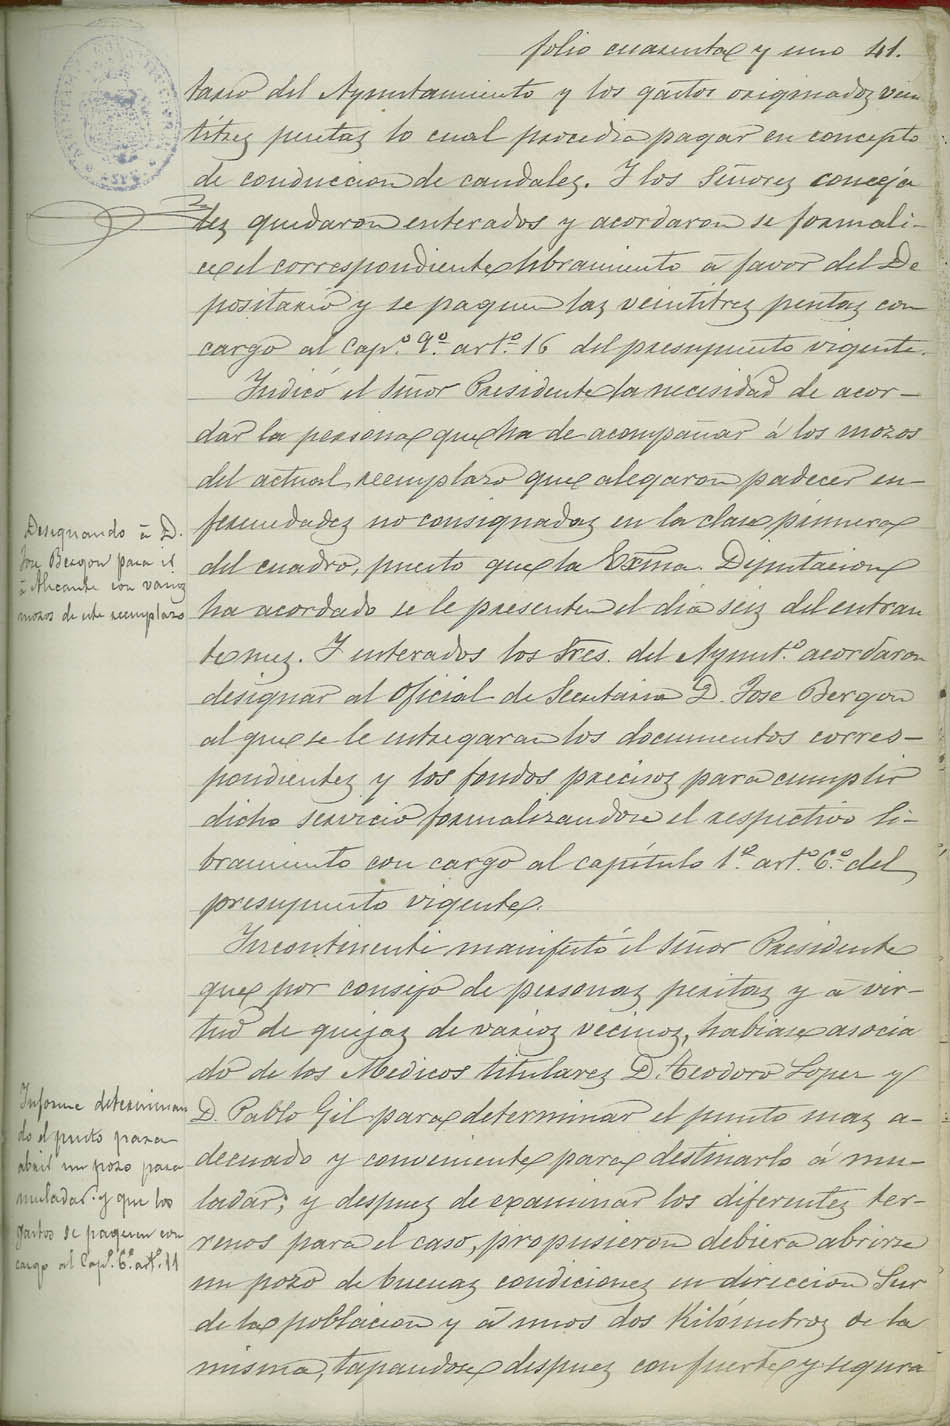 folio cuarenta y uno 41.
tario del Ayuntamiento y los gastos originados vein
titres pesetas lo cual procedia pagar en concepto
de conduccion de caudales. Y los Señores conceja
les quedaron enterados y acordaron se formali-
ce el correspondiente libramiento á favor del De
positario y se paguen las veintitres pesetas con
cargo al Cap.º 9.º art.º 16 del presupuesto vigente.
Indicó el Señor Presidente la necesidad de acor-
dar la persona que ha de acompañar á los mozos
del actual reemplazo que alegaron padecer en-
fermedades no consignadas en la clase primera
del cuadro, puesto que la Exma. Diputacion
ha acordado se le presenten el dia seis del entran
te mes. Y enterados los Sres. del Aynt.º acordaron
designar al Oficial de Secretaria D. Jose Bergon
al que se le entregaran los documentos corres-
pondientes y los fondos precisos para cumplir
dicho servicio formalizandose el respectivo li-
bramiento con cargo al capítulo 1.º art.º 6.º del
presupuesto vigente.
Incontinenti manifestó el Señor Presidente
que por consejo de personas peritas y á vir-
tud de quejas de varios vecinos, habiase asocia
do de los Medicos titulares D. Teodoro Lopez y
D. Pablo Gil para determinar el punto mas a-
decuado y conveniente para destinarlo á mu-
ladar; y despues de examinar los diferentes ter-
renos para el caso, propusieron debiera abrirse
un pozo de buenas condiciones en direccion Sur
de la poblacion y á unos dos Kilómetros de la
misma, tapandose despues con fuerte y segura
Designando á D.
Jose Bergon para ir
á Alicante con varios
mozos de este reemplazo
Informe determinan
do el punto para
abrir un pozo para
muladar y que los
gastos se paguen con
cargo al Cap.º 6.º art.º 11